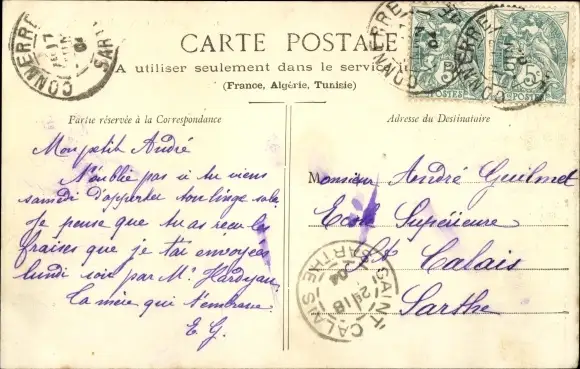 CARTE POSTALE
A utiliser seulement dans le service
(France, Algérie, Tunisie)
Partie réservée à la Correspondance
Adresse du Destinataire
Mon petit André
N'oublie pas si tu viens
samedi d'apporter ton linge sale
Je pense que tu as reçu les
fraises que je t'ai envoyées
lundi soir par Mr
La mère qui t'embrasse
E G.
Monsieur André Guilmet
Ecole Supérieure
St Calais
Sarthe
CONNERRE
SARTHE
04
CONNERRE
04
5c
POSTES
CONNERRE
5c
POSTES
SAINT CALAIS
SARTHE
18
04